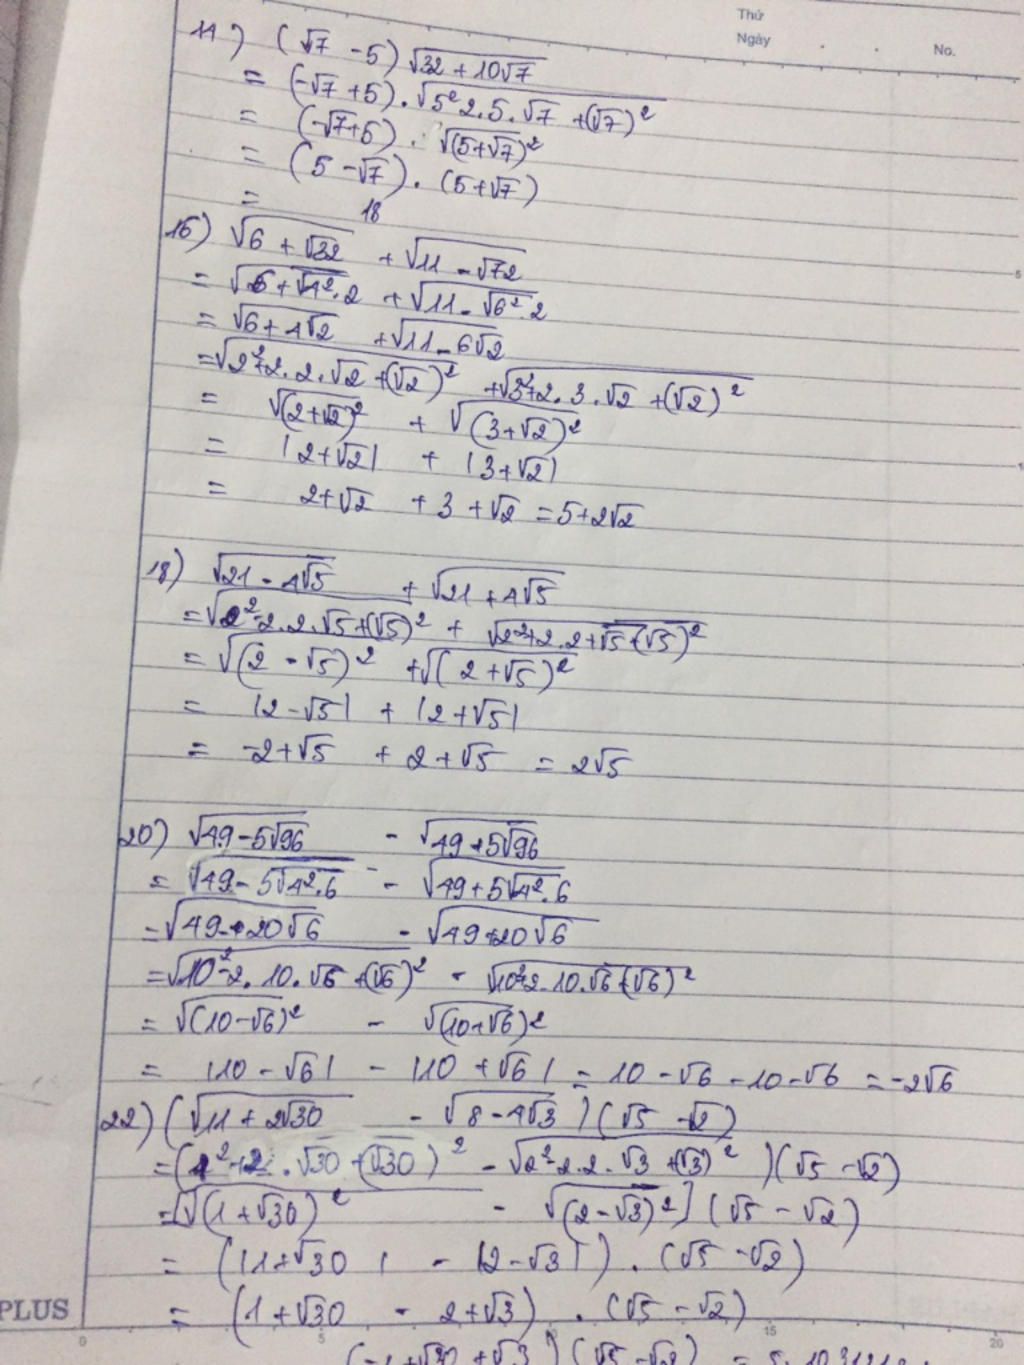 Thứ
Ngày . . No.
11) (√7 - 5) √(32 + 10√7)
= (-√7 + 5) . √(5² 2.5.√7 + (√7)²)
= (-√7+5) . √((5+√7)²)
= (5 - √7) . (5+√7)
= 18
16) √(6 + √32) + √(11 - √72)
= √(6 + √(4².2)) + √(11 - √(6².2))
= √(6 + 4√2) + √(11 - 6√2)
= √(2²+2.2.√2 + (√2)²) + √(3²+2.3.√2 + (√2)²)
= √((2+√2)²) + √((3+√2)²)
= |2+√2| + |3+√2|
= 2+√2 + 3 + √2 = 5+2√2
18) √(21 - 4√5) + √(21 + 4√5)
= √(2²-2.2.√5+(√5)²) + √(2²+2.2+√5+(√5)²)
= √((2 - √5)²) + √((2+√5)²)
= |2-√5| + |2+√5|
= -2+√5 + 2+√5 = 2√5
20) √(49-5√96) - √(49+5√96)
= √(49-5√(4².6)) - √(49+5√(4².6))
= √(49-20√6) - √(49+20√6)
= √(10²-2.10.√6 + (√6)²) - √(10²+2.10.√6+(√6)²)
= √((10-√6)²) - √((10+√6)²)
= |10 - √6| - |10 + √6| = 10 - √6 - 10 - √6 = -2√6
22) (√(11+2√30) - √(8-4√3))(√5 - √2)
= (1²+2.√30 + (√30)² - √(2²-2.2.√3 + (√3)²))(√5 - √2)
= [√((1+√30)²) - √((2-√3)²)](√5 - √2)
= (|1+√30| - |2-√3|) . (√5 - √2)
= (1+√30 - 2+√3) . (√5 - √2)
PLUS 0 5 10 15 20
(-1+√30 +√3)(√5 - √2)